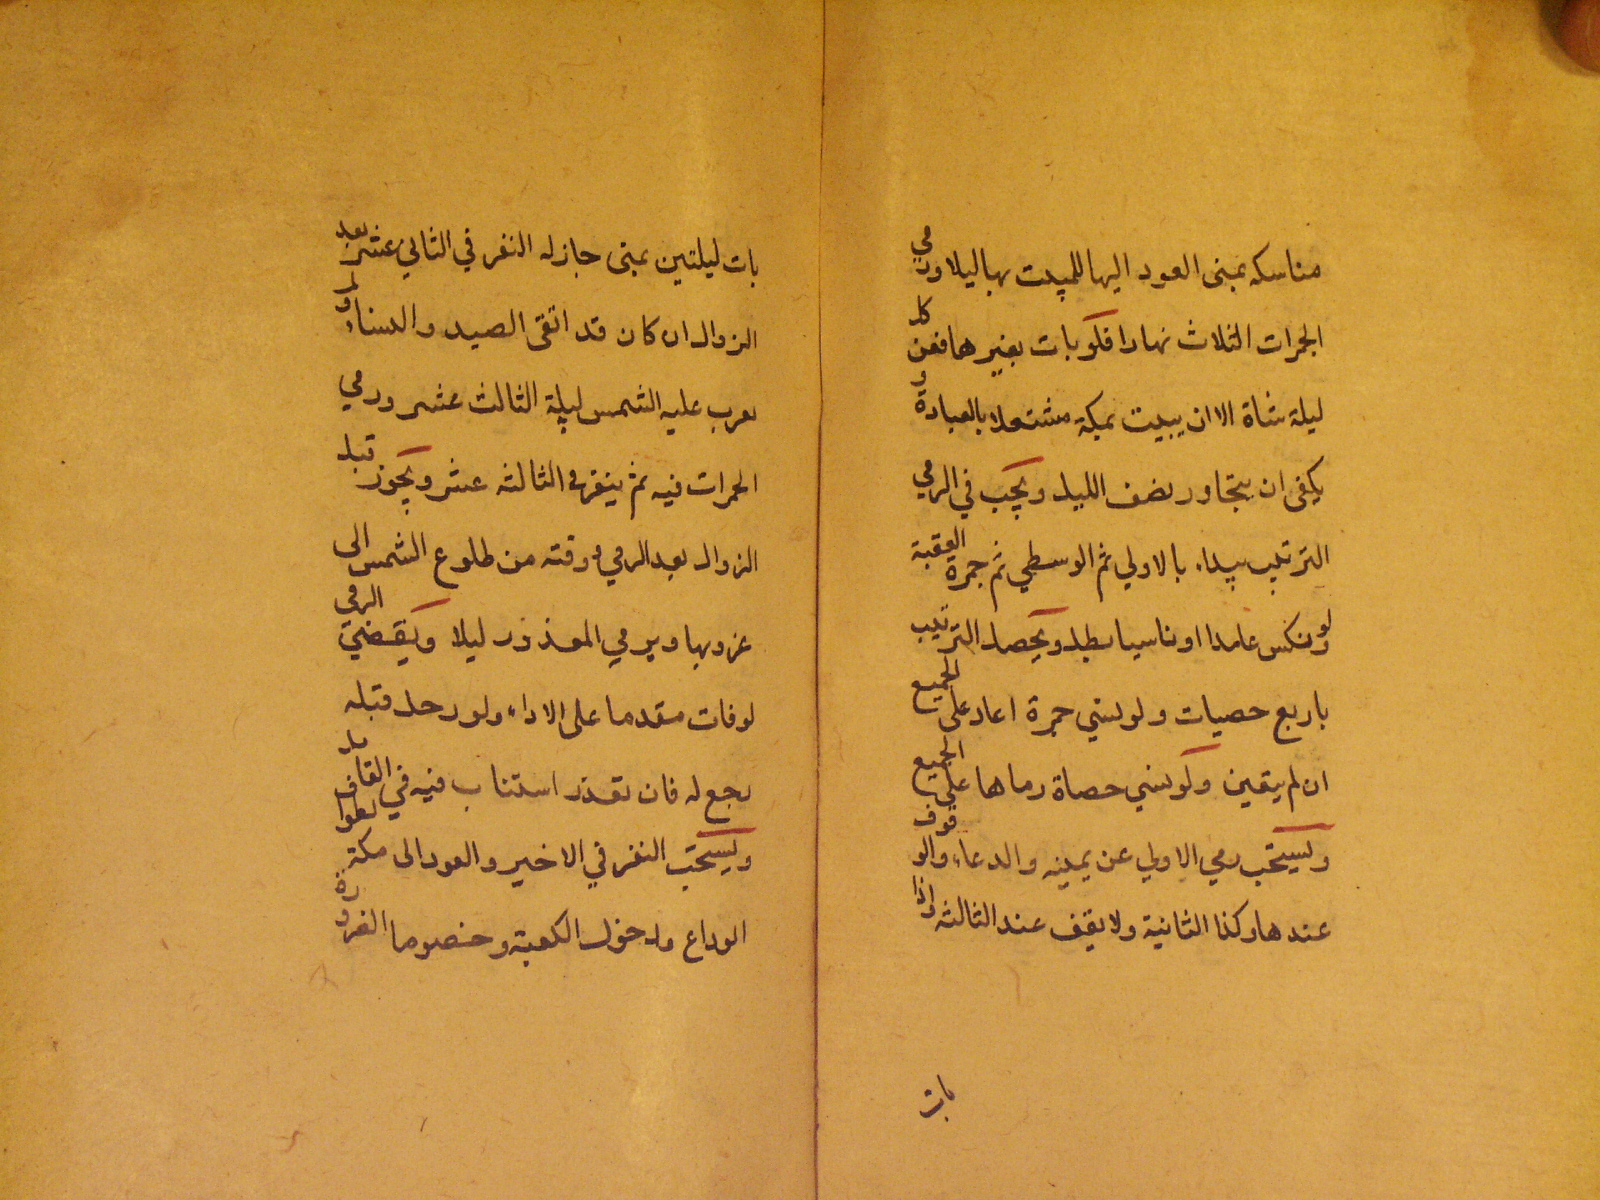 مناسكه بمنى العود اليها للمبيت بها ليلا ورمي
الجمرات الثلاث نهارا فلو بات بغيرها فعن كل
ليلة شاة الا ان يبيت بمكة مشتغلا بالعبادة و
يكفى ان يتجاوز نصف الليل ويجب في الرمي
الترتيب يبداء بالاولي ثم الوسطي ثم جمرة العقبة
ولو نكس عامدا او ناسيا بطل ويحصل الترتيب
باربع حصيات ولو نسي جمرة اعاد على الجميع
ان لم يتعين ولو نسي حصاة رماها على الجميع
ويستحب رمي الاولي عن يمينه والدعاء والوقوف
عندها وكذا الثانية ولا يقف عند الثالثه واذا
بات
بات ليلتين بمنى جاز له النفر في الثاني عشر بعد
الزوال ان كان قد اتقى الصيد والنساء ولم
تغرب عليه الشمس ليلة الثالث عشر ورمي
الجمرات فيه ثم ينفر في الثالثه عشر ويجوز قبل
الزوال بعد الرمي ووقته من طلوع الشمس الى
غروبها ويرمي المعذور ليلا ويقضي الرمي
لو فات مقدما على الاداء ولو رحل قبله
رجع له فان تعذر استناب فيه في القابل
ويستحب النفر في الاخير والعود الى مكة لطواف
الوداع ودخول الكعبة وخصوصا الضرورة